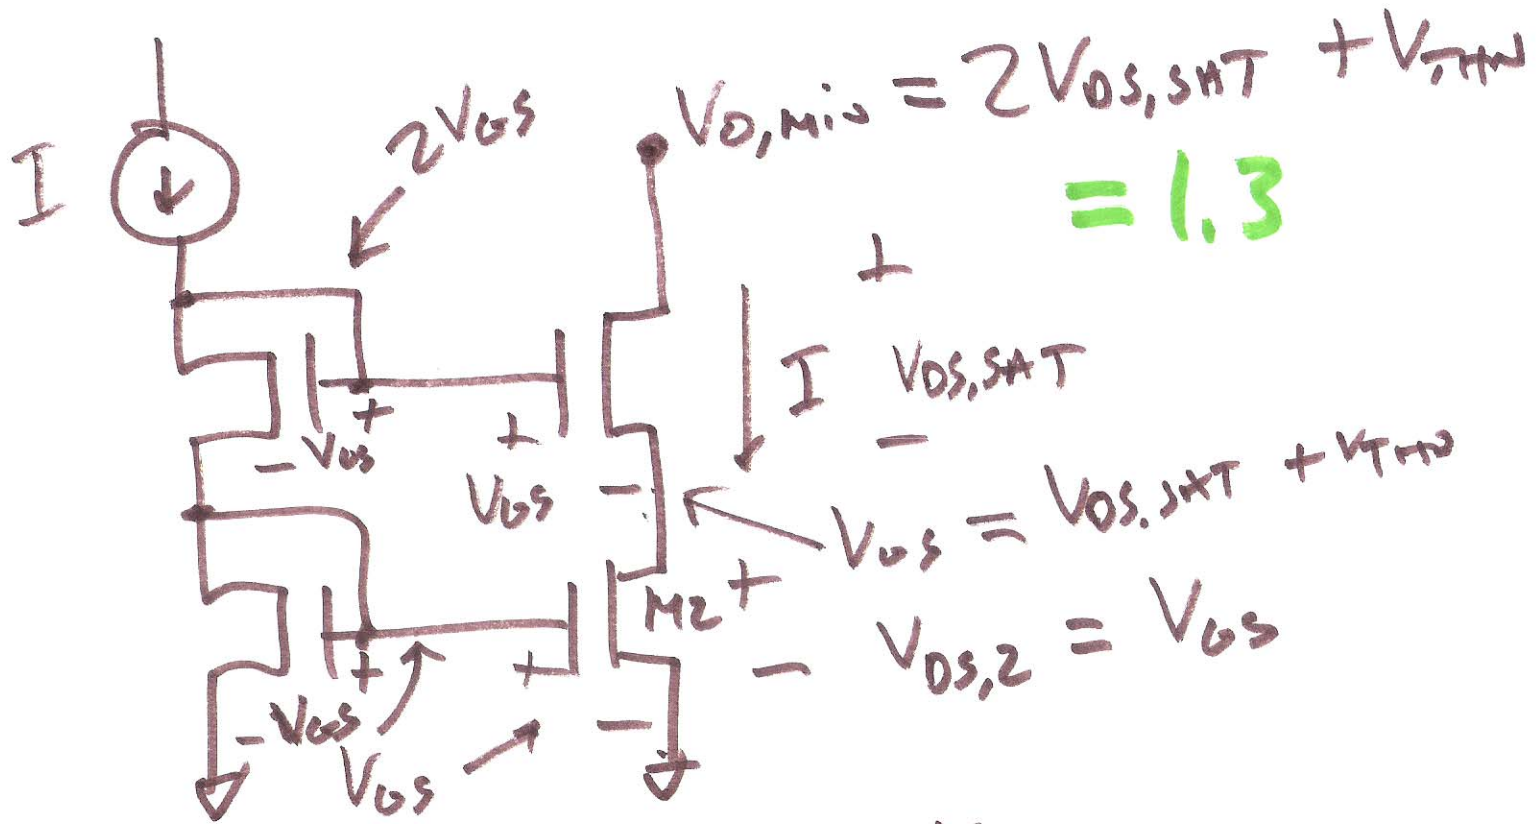 I
2VGS
VO,MIN = 2VDS,SAT + VTHN
= 1.3
+
I
VDS,SAT
-
+
- VGS
+
VGS -
VGS = VDS,SAT + VTHN
M2 +
- VDS,2 = VGS
+
- VGS
+
-
VGS